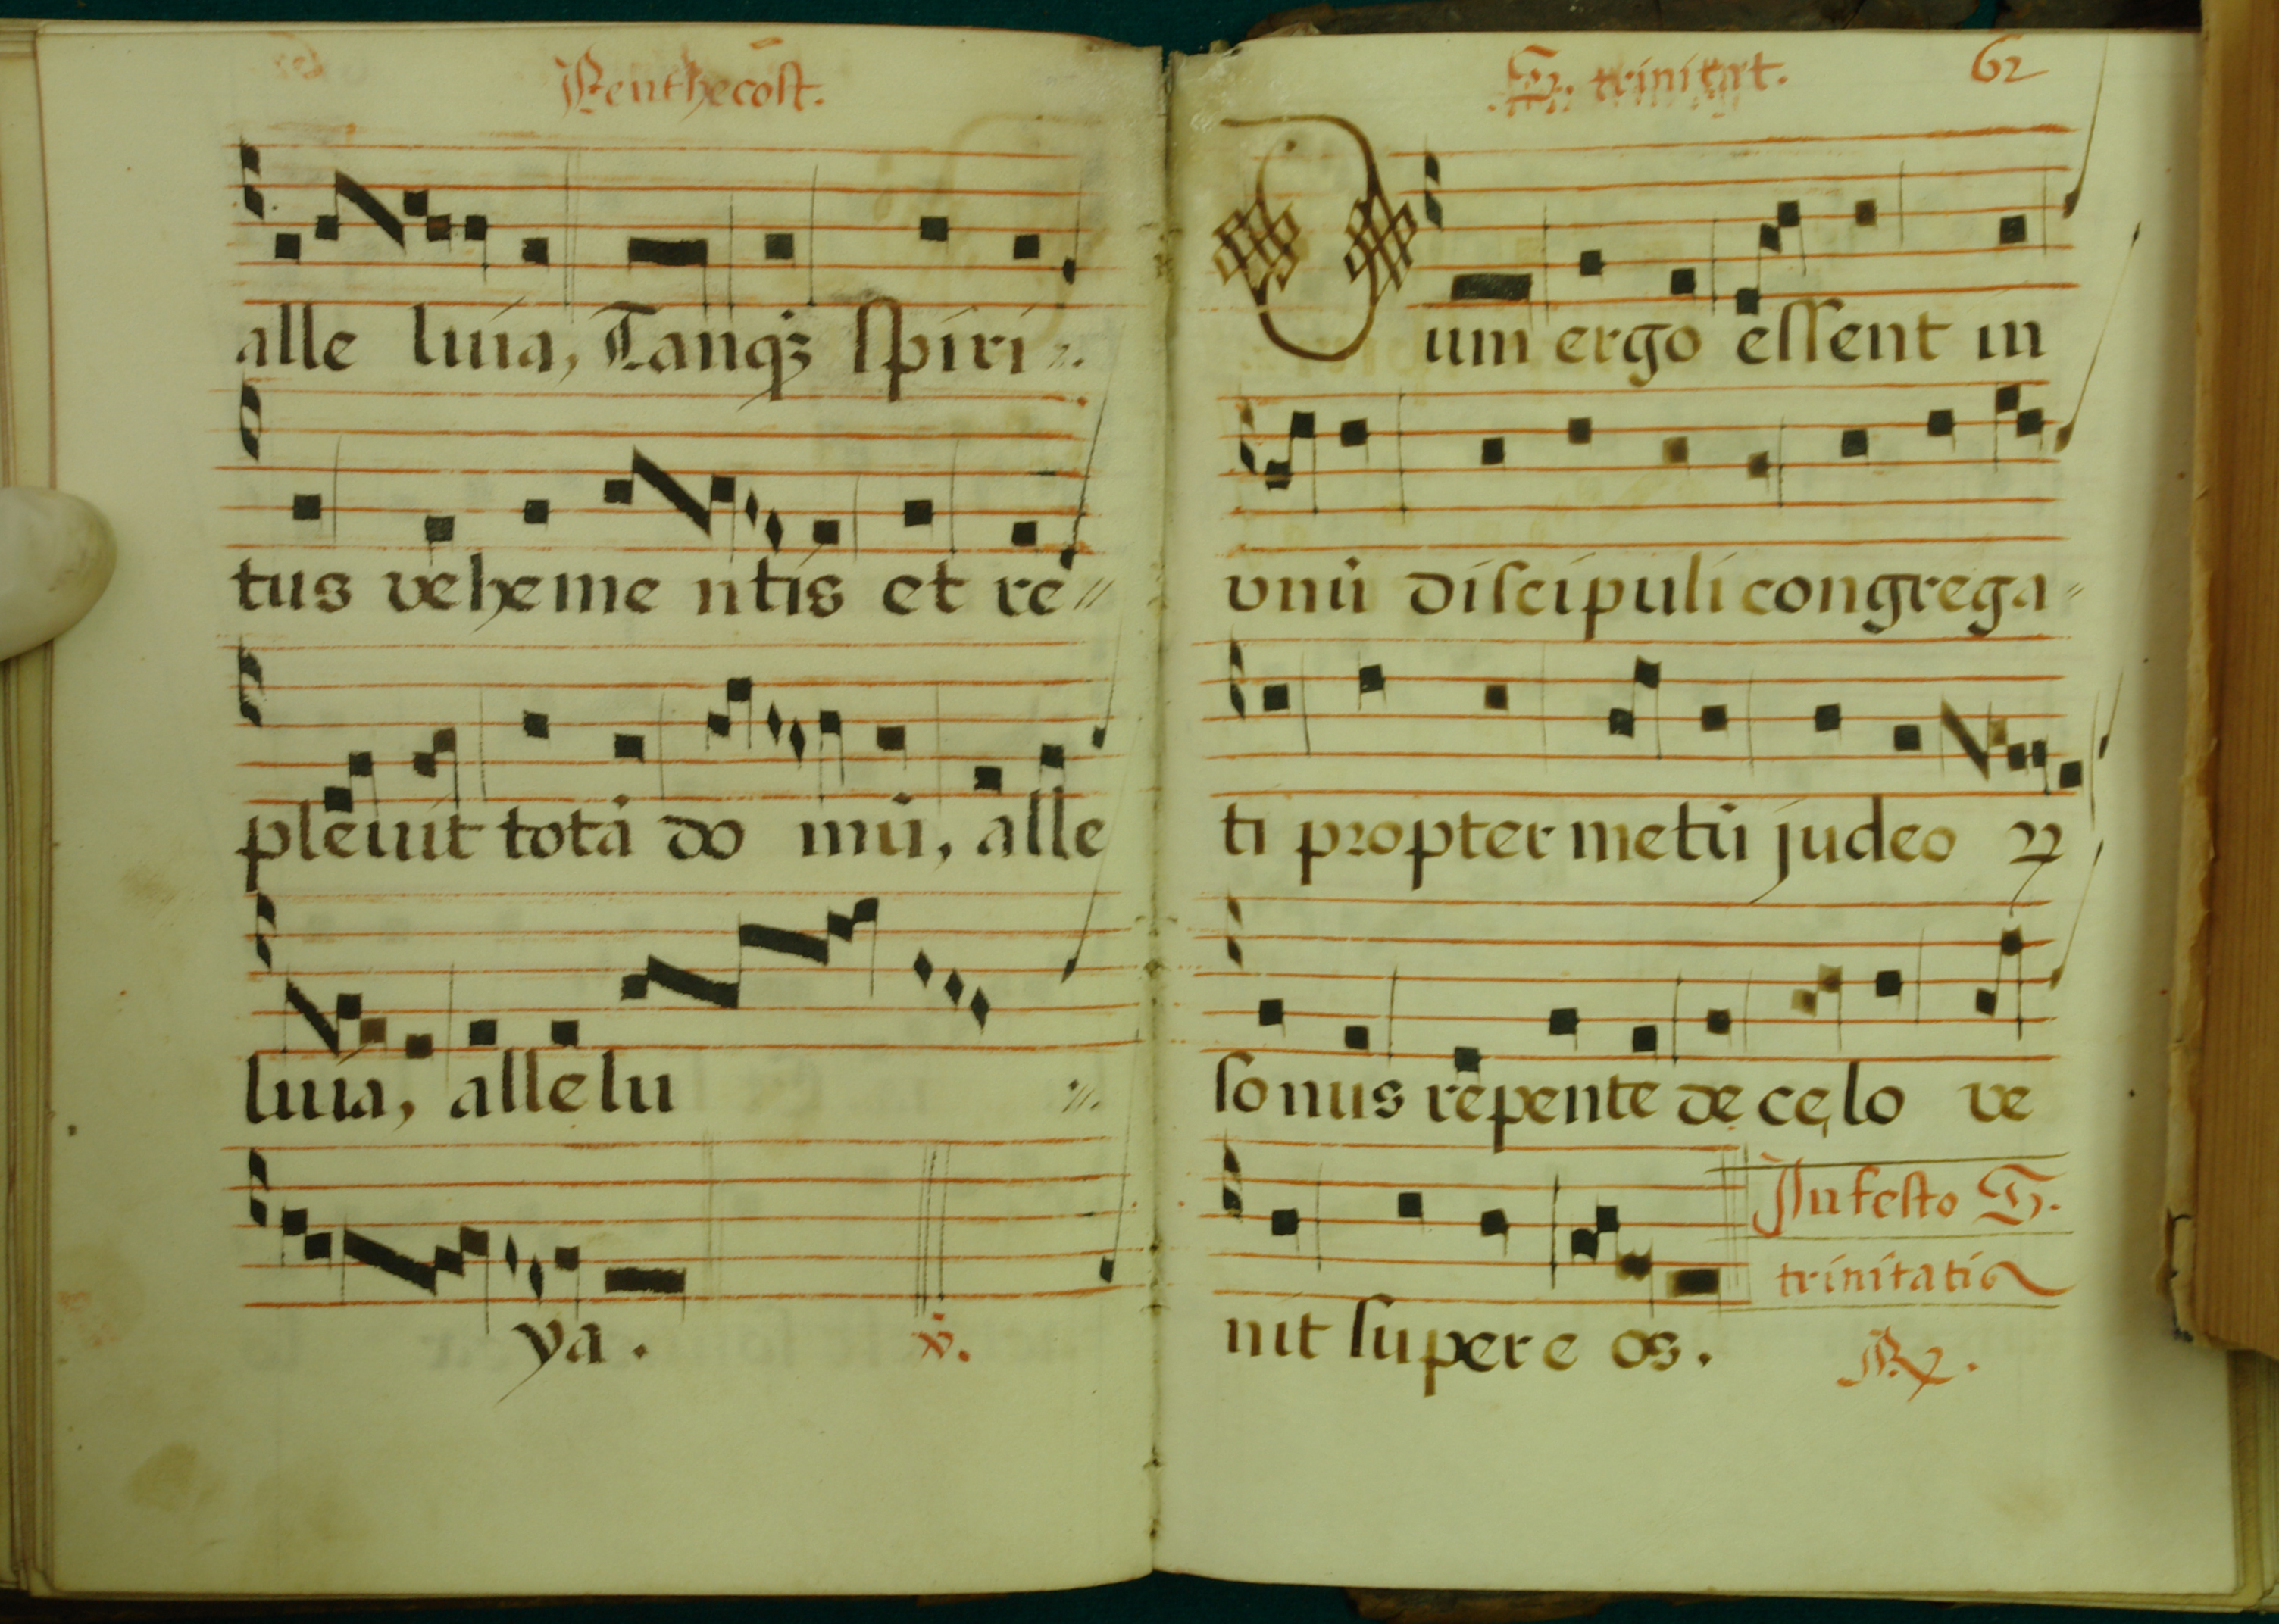 Penthecost.
alle luia, Tanqȝ spiri
tus veheme ntis et re
pleuit totā do mū, alle
luia, allelu
ya. ℣.
S. trinitat. 62
Dum ergo essent in
vnū discipuli congrega
ti propter metū judeo ꝝ
sonus repente de cęlo ve
nit super e os.
In festo S.
trinitatis
℟.